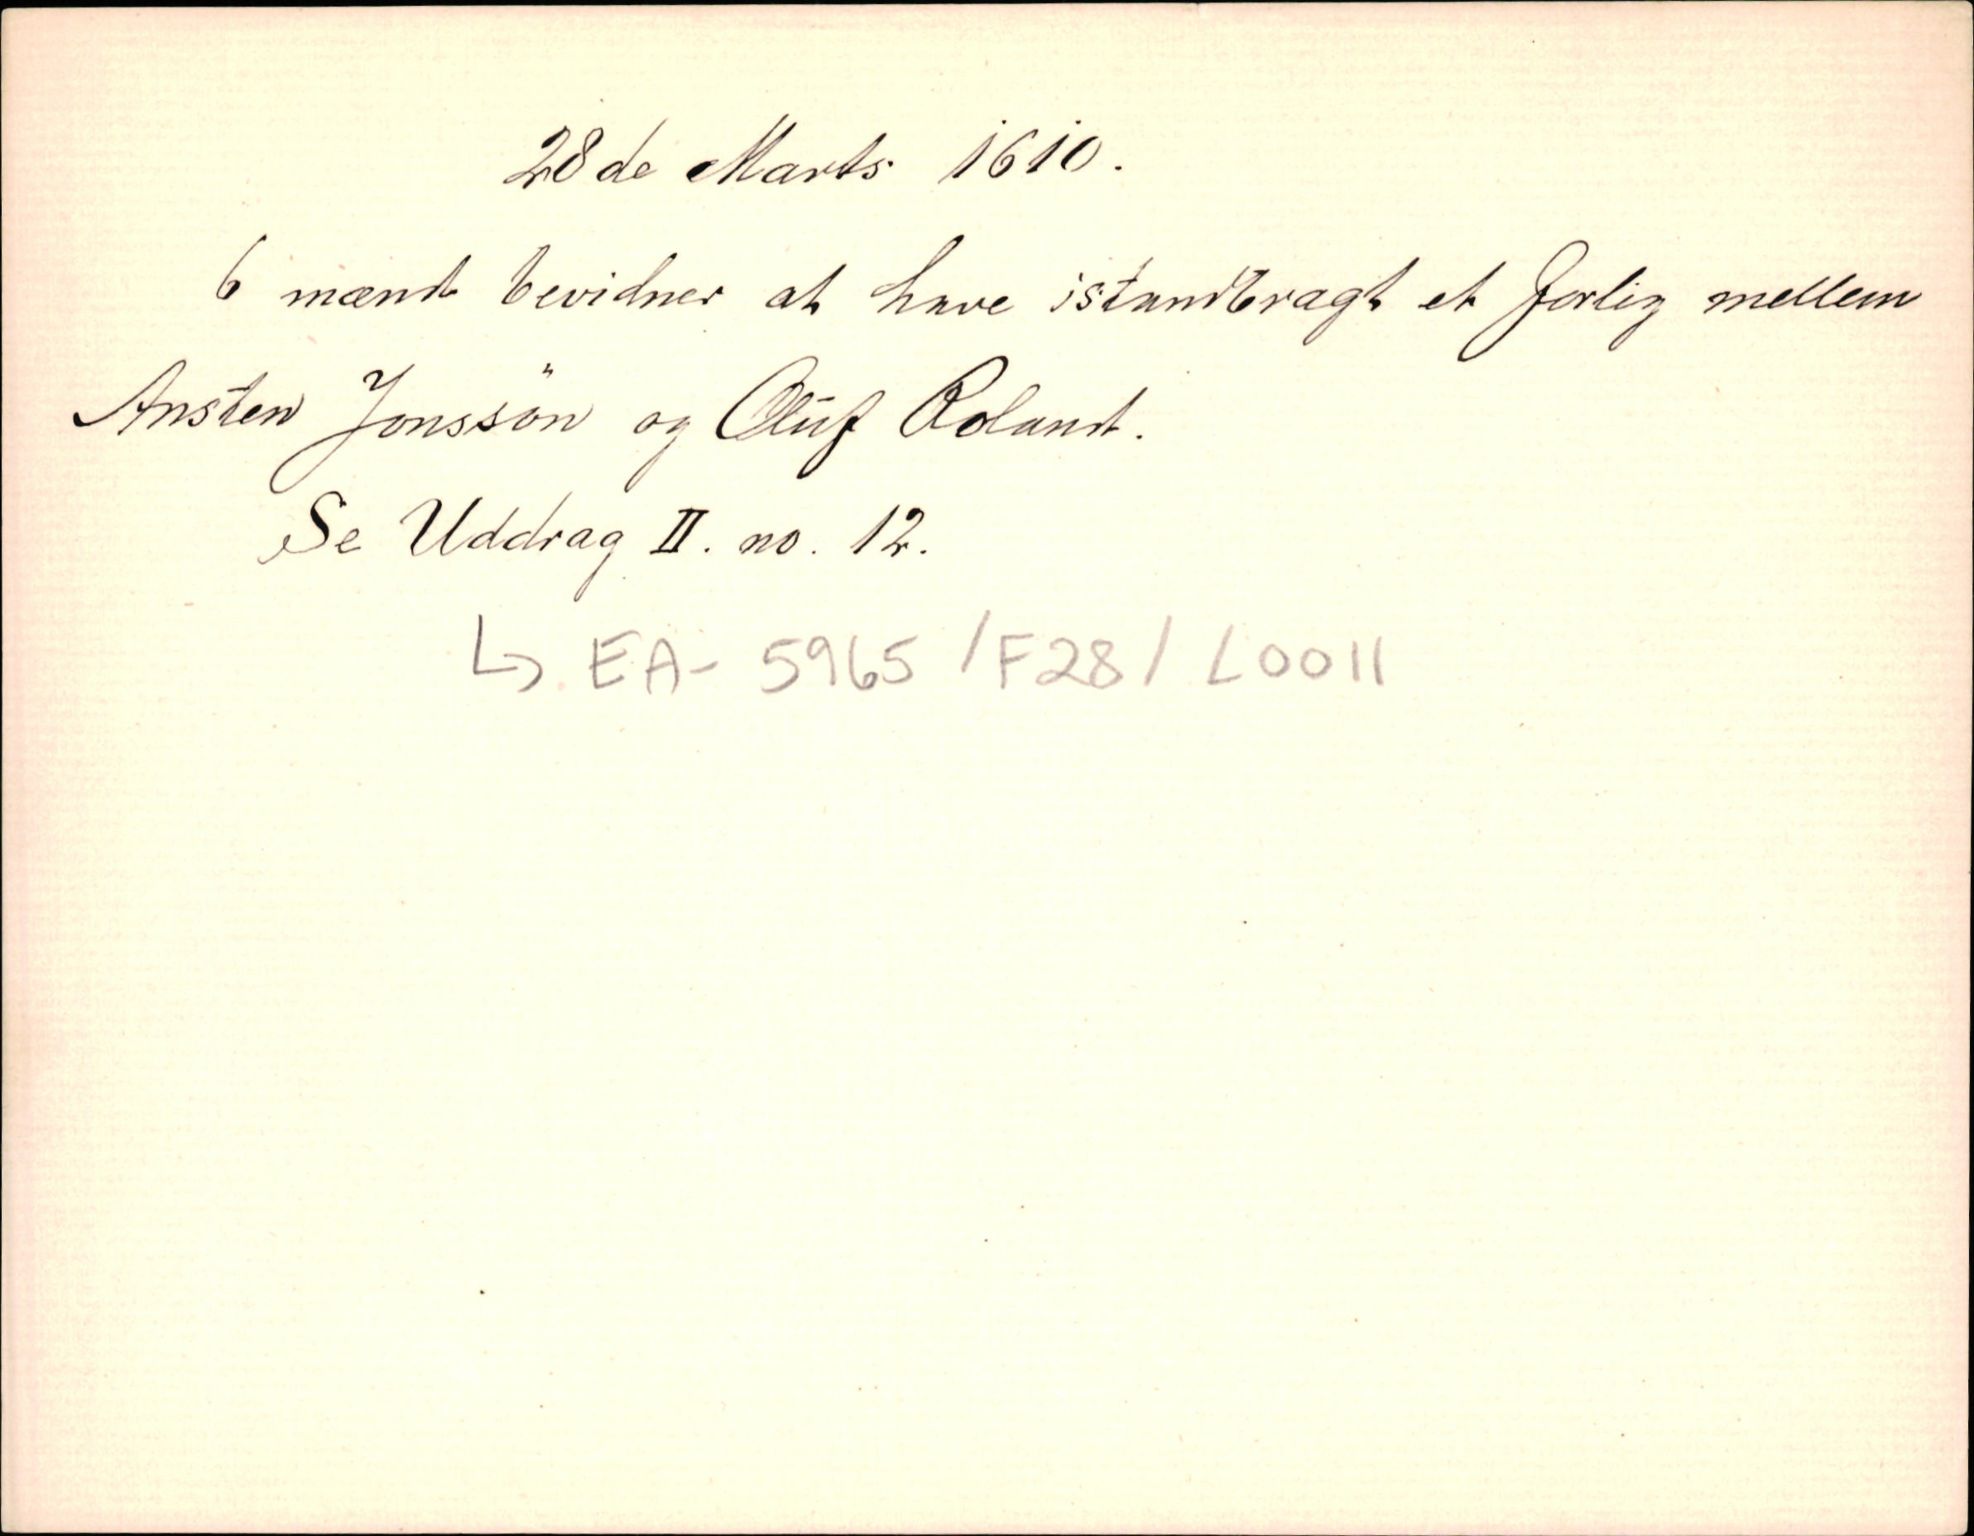 28de Marts 1610.
6 mænd bevidner at have istandbragt et forlig mellem
Ansten Jonssön og Oluf Roland.
Se Uddrag II. no. 12.
↳ EA-5965/F28/L0011